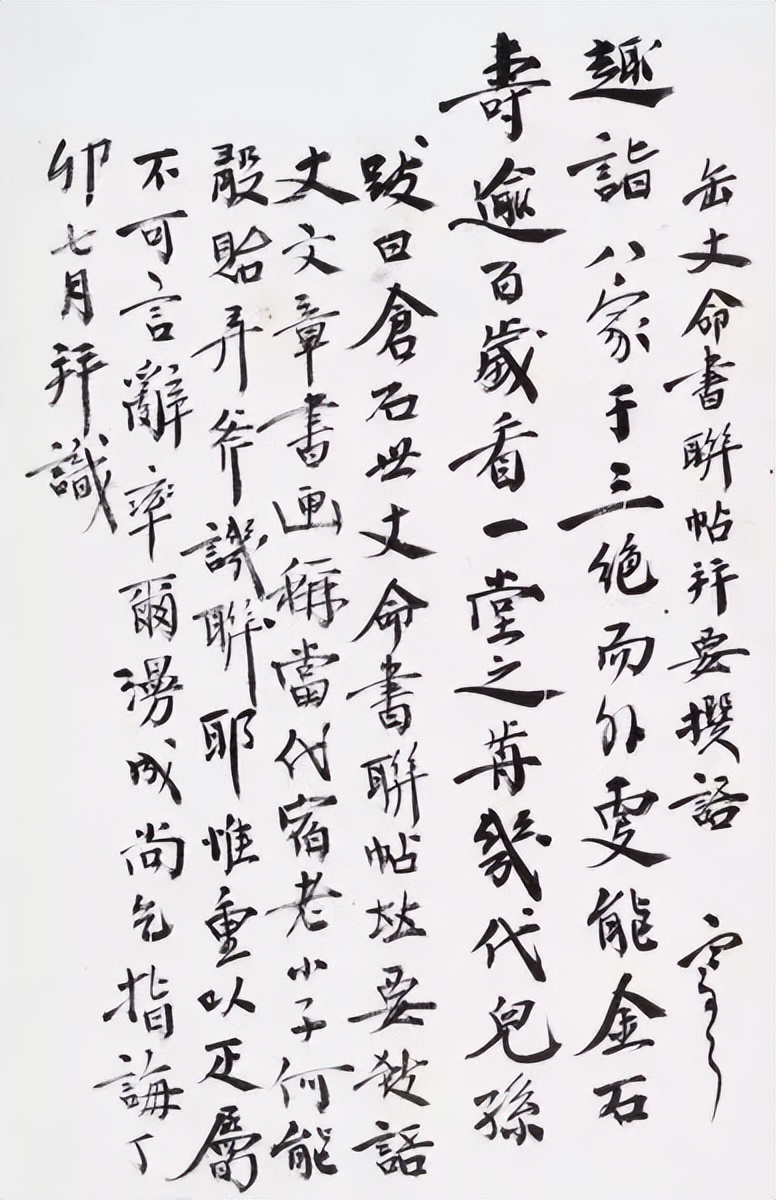 缶丈命書聯帖並要撰語
趣詣八家于三绝而外更能金石
壽逾百歲看一堂之前幾代兒孫
跋曰倉石世丈命書聯帖並要撰語
丈文章書画稱當代宿老小子何能
骰貽弄斧譏聯耶惟重以疋屬
不可言辭率爾漫成尚乞指誨丁
卯七月拜識